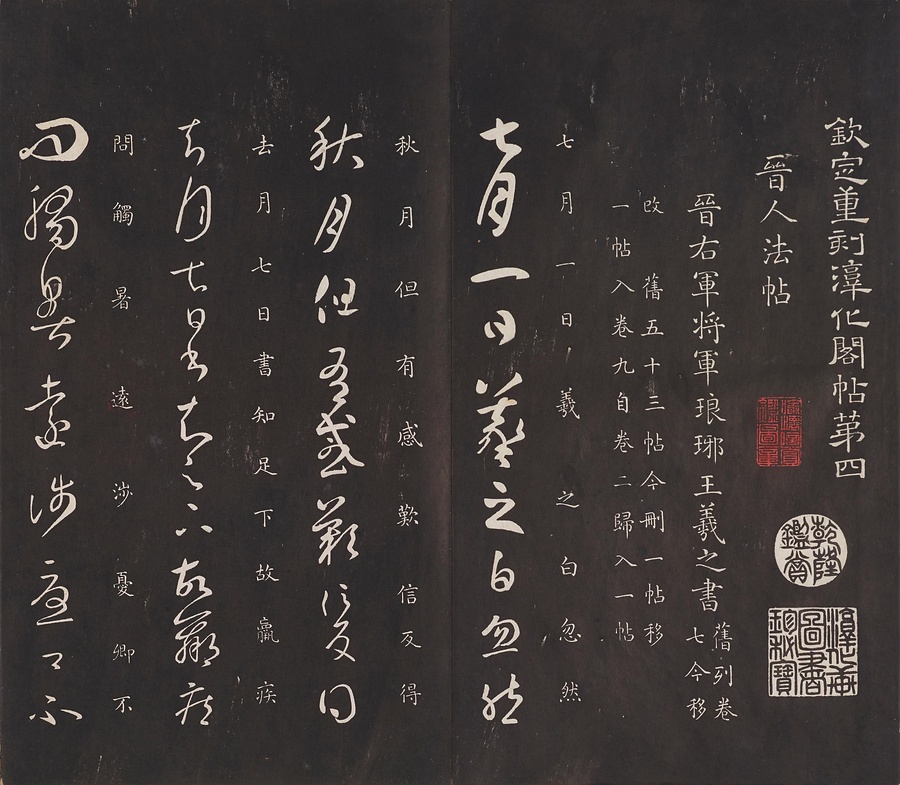 欽定重刻淳化閣帖第四
乾隆鑑賞
淳化軒圖書珍秘寶
晉人法帖
晉右軍将軍琅琊王羲之書
舊列卷
七今移
改 舊五十三帖今刪一帖移
一帖入卷九自卷二歸入一帖
七月一日羲之白忽然
七月一日羲之白忽然
秋月但有感歎信反得
秋月但有感歎信反得
去月七日書知足下故羸疾
去月七日書知足下故羸疾
問觸暑遠涉憂卿不
問觸暑遠涉憂卿不